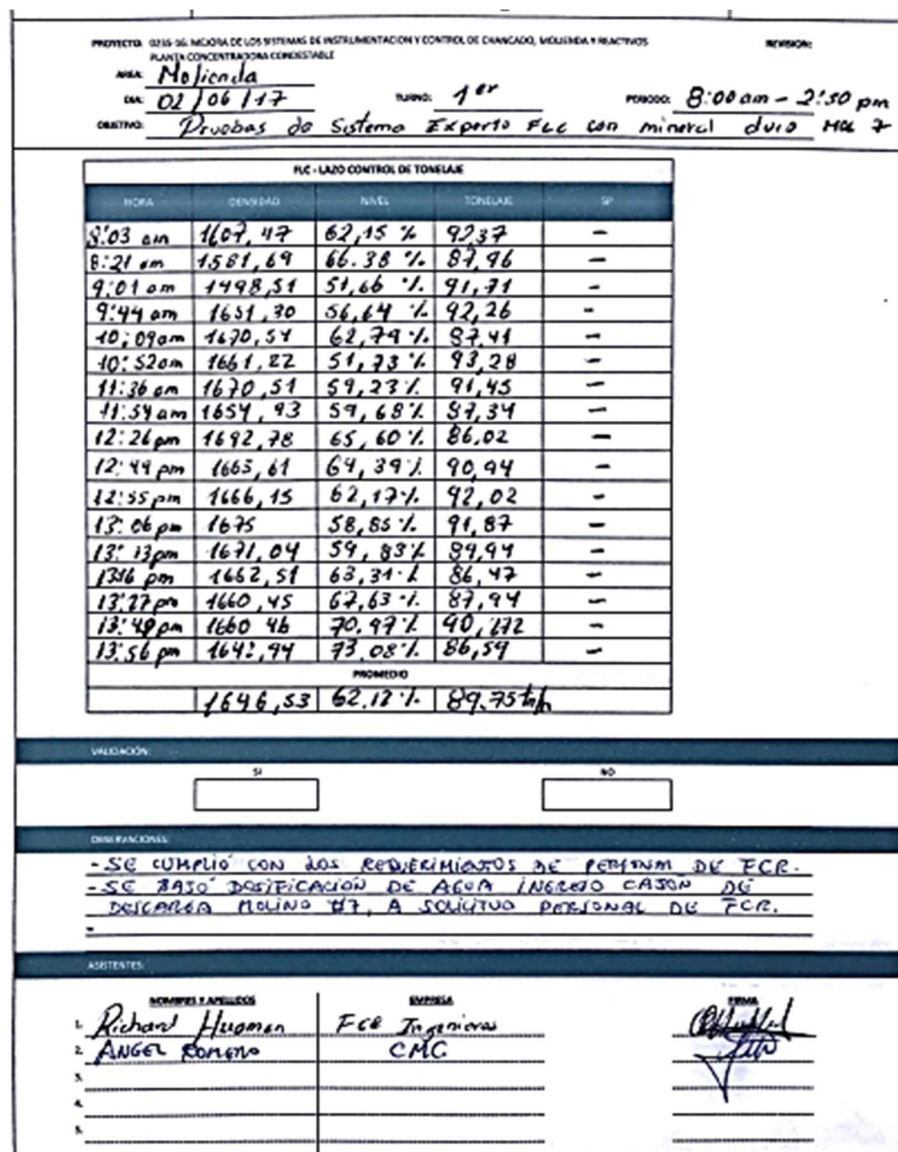 PROYECTO: 0255-16: MEJORA DE LOS SISTEMAS DE INSTRUMENTACION Y CONTROL DE CHANCADO, MOLIENDA Y REACTIVOS REVISION:
PLANTA CONCENTRADORA CONDESTABLE
AREA: Molienda
DIA: 02/06/17 TURNO: 1er PERIODO: 8:00 am - 2:50 pm
OBJETIVO: Pruebas do Sistema Experto FLC con mineral duro 7
FLC - LAZO CONTROL DE TONELAJE
HORA DENSIDAD NIVEL TONELAJE SP
8:03 am 1607,47 62,15 % 92,37 -
8:21 am 1581,69 66.38 % 87,96 -
9:01 am 1498,51 51,66 % 91,71 -
9:44 am 1651,30 56,64 % 92,26 -
10:09am 1670,51 62,79 % 87,41 -
10:52am 1661,22 51,73 % 93,28 -
11:36 am 1670,51 59,23% 91,45 -
11:54 am 1654,93 59,68% 87,34 -
12:26 pm 1692,78 65,60 % 86,02 -
12:44 pm 1665,61 64,39% 90,94 -
12:55 pm 1666,15 62,17% 92,02 -
13:06 pm 1675 58,85 % 91,87 -
13:13pm 1671,04 59,83% 89,94 -
1316 pm 1662,51 63,31% 86,47 -
13:27pm 1660,45 67,63 % 87,94 -
13:48 pm 1660 46 70.97% 90,272 -
13:56 pm 1642,94 73.08% 86,59 -
PROMEDIO
1646,53 62.12 % 89.75 tn/h
VALIDACIÓN:
SI NO
OBSERVACIONES:
- SE CUMPLIÓ CON LOS REQUERIMIENTOS DE PERSONAL DE FCR.
- SE BAJÓ DOSIFICACIÓN DE AGUA INGRESO CAJON DE
DESCARGA MOLINO #7, A SOLICITUD PERSONAL DE FCR.
-
ASISTENTES:
NOMBRES Y APELLIDOS EMPRESA FIRMA
1. Richard Huaman FCR Ingenieros
2. ANGEL ROMERO CMC
3.
4.
5.